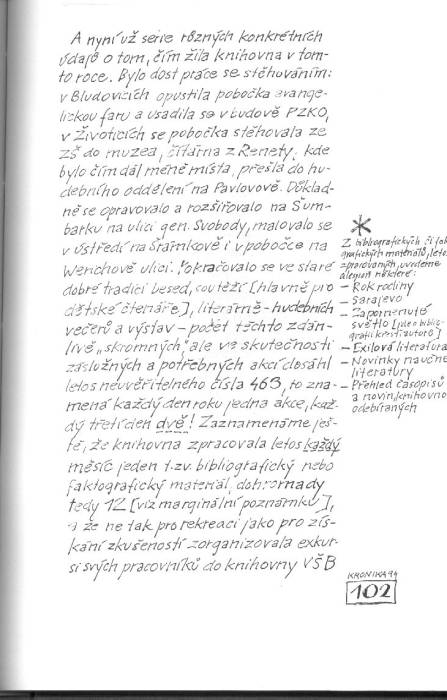 A nyní už série různých konkrétních
údajů o tom, čím žila knihovna v tom-
to roce. Bylo dost práce se stěhováním:
v Bludovicích opustila pobočka evange-
lickou faru a usadila se v budově PZKO,
v Životicích se pobočka stěhovala ze
ZŠ do muzea, čítárna z Renety, kde
bylo čím dál méně místa, přešla do hu-
debního oddělení na Pavlovově. Důklad-
ně se opravovalo a rozšiřovalo na Šum-
barku na ulici gen. Svobody, malovalo se
v ústředí na Šrámkově i v pobočce na
Werichově ulici. Pokračovalo se ve staré
dobré tradici besed, soutěží [hlavně pro
dětské čtenáře], literárně-hudebních
večerů a výstav – počet těchto zdán-
livě „skromných", ale ve skutečnosti
záslužných a potřebných akcí dosáhl
letos neuvěřitelného čísla 463, to zna-
mená každý den roku jedna akce, kaž-
dý třetí den dvě! Zaznamenáme ješ-
tě, že knihovna zpracovala letos každý
měsíc jeden t.zv. bibliografický nebo
faktografický materiál, dohromady
tedy 12 [viz marginální poznámku],
a že ne tak pro rekreaci jako pro zís-
kání zkušeností zorganizovala exkur-
si svých pracovníků do knihovny VŠB
*
Z bibliografických či fak-
tografických materiálů, letos
zpracovaných, uvedeme
alespoň některé:
– Rok rodiny
– Sarajevo
– Zapomenuté
světlo [videobiblio-
grafii
– Exilová literatura
– Novinky naučné
literatury
– Přehled časopisů
a novin, knihovnou
odebíraných
KRONIKA 94
102